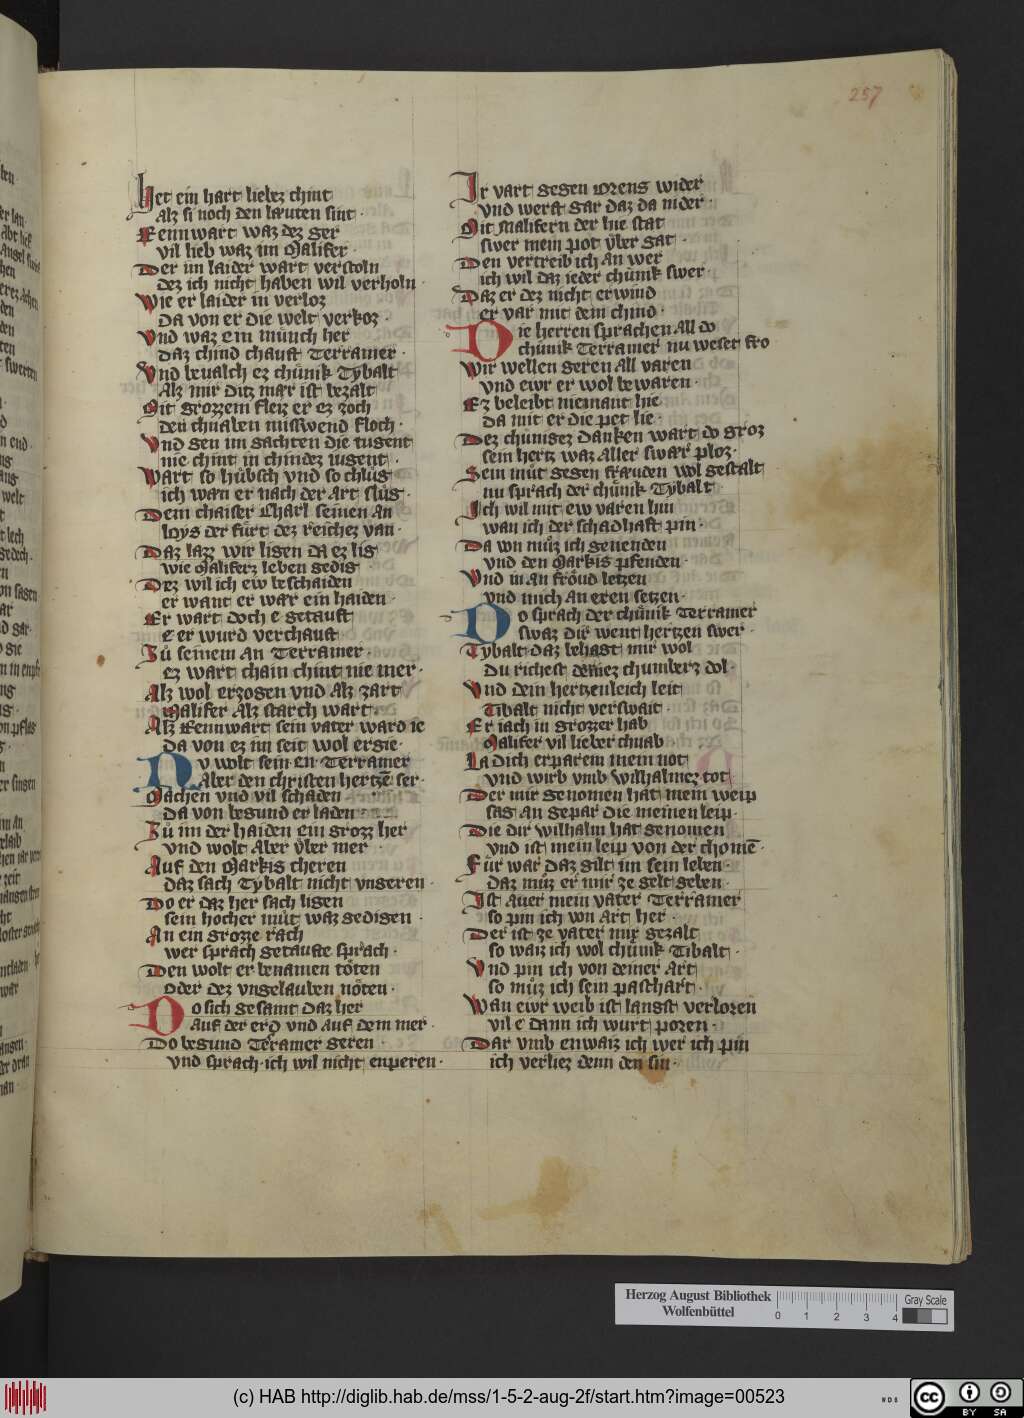 257
Het ein hart liebez chint
Alz si noch den lauten sint ·
Rennwart waz dez ger
vil lieb waz im Malifer ·
Der im laider wart verstoln
dez ich nicht haben wil verholn ·
Wie er laider in verloz
Da von er die welt verkoz ·
Vnd waz ein münch her
Daz chind chauft Terramer ·
Vnd beualch ez chünik Tybalt
Alz mir ditz mær ist bezalt
Mit grozzem fleiz er ez zoch
den chnaben missewend floch ·
Vnd gen im sachten die tugent
nie chint in chindez iugent ·
Wart so hübsch vnd so chlůg
ich wan er nach der art slůg ·
Dem chaiser Charl seinen an
loys der fürt dez reichez van ·
Daz lazz wir ligen da ez lig
wie Maliferz leben gedig
Dez wil ich ew beschaiden
er want er wær ein haiden ·
Er wart doch e getauft
e er wurd verchauft ·
Zů seinem an Terramer ·
ez wart chain chint nie mer ·
Alz wol erzogen vnd alz zart
Malifer alz starch wart ·
Alz Rennwart sein vater ward ie
da von ez im seit wol ergie ·
Nv wolt sein en Terramer
Aber den christen hertzē ser ·
Machen vnd vil schaden
Da von begund er laden ·
Zů im der haiden ein grozz her
vnd wolt aber vber mer ·
Auf den Markis cheren
daz sach Tybalt nicht vngeren ·
Do er daz her sach ligen
sein hocher můt waz gedigen ·
An ein grozze rach
wer sprach getaufte sprach ·
Den wolt er benamen töten
oder dez vngelauben nöten ·
Do sich gesamt daz her
Auf der erd vnd auf dem mer ·
Do begund Terramer geren
vnd sprach · ich wil nicht enperen ·
Ir vart gegen Orens wider
vnd werft gar daz da nider ·
Mit Malifern der hie stat
swer mein pot vber gat ·
Den vertreib ich an wer
ich wil daz ieder chünik swer ·
Daz er dez nicht erwind
er var mit dem chind ·
Die herren sprachen all do
chünik Terramer nu weset fro
Wir wellen geren all varen
vnd ewr er wol bewaren ·
Ez beleibt niemant hie
da mit er die pet lie ·
Dez chünigez danken wart do groz
sein hertz waz aller swær ploz ·
Sein můt gegen fræuden wol gestalt
nu sprach der chünik Tybalt ·
Ich wil mit ew varen hin
wan ich der schadhaft pin ·
Da von můz ich genenden
vnd den Markis pfenden ·
Vnd in an fröud letzen
vnd mich an eren setzen ·
Do sprach der chünik Terramer
swaz dir went hertzen swer ·
Tybalt daz behagt mir wol
Du richest deinez chumberz dol ·
Vnd dein hertzenleich leit
Tibalt nicht versmait ·
Er iach in grozzer hab
Malifer vil lieber chnab
La dich erparem mein not
vnd wirb vmb wilhalmez tot
Der mir genomen hat mein weip
sag an gepar die meinen leip ·
Die dir wilhalm hat genomen
vnd ist mein leip von der chomē ·
Für war daz gilt im sein leben ·
daz můz er mir ze gelt geben ·
Ist auer mein vater Terramer
so pin ich von art her ·
Der ist ze vater mir gezalt
so waiz ich wol chünik Tibalt ·
Vnd pin ich von deiner art
so můz ich sein paschart ·
Wan ewr weib ist langst verloren
vil e dann ich wurt poren ·
Dar vmb enwaiz ich wer ich pin
ich verliez denn den sin ·
Herzog August Bibliothek
Wolfenbüttel
0 1 2 3 4
Gray Scale
(c) HAB http://diglib.hab.de/mss/1-5-2-aug-2f/start.htm?image=00523
cc BY SA